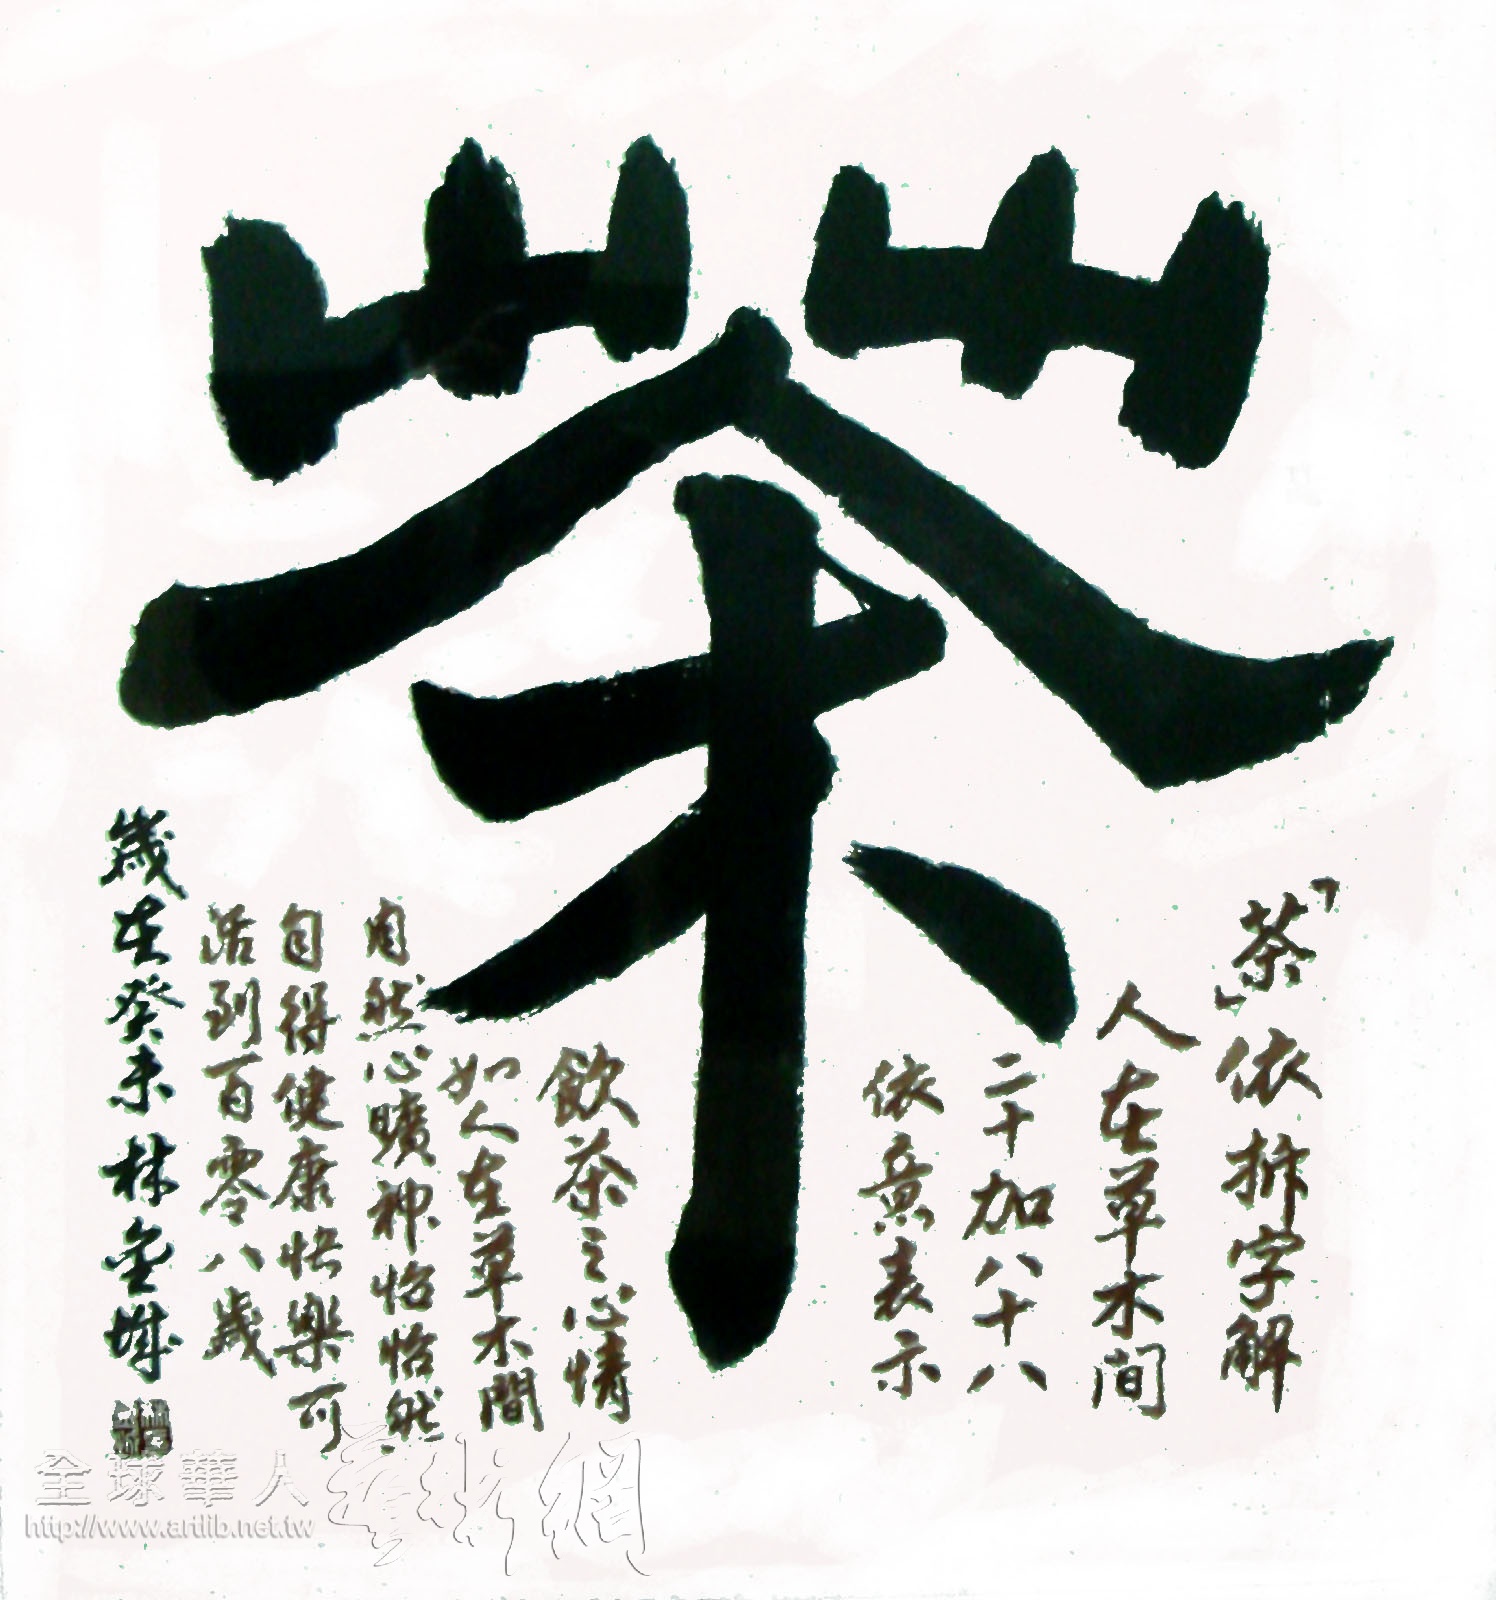 茶
「茶」依拆字解
人在草木间
二十加八十八
依意表示
飲茶之心情
如人在草木間
自然心曠神怡怡然
自得健康快樂可
活到百零八歲
歲在癸未林金城
全球華人藝術網
http://www.artlib.net.tw